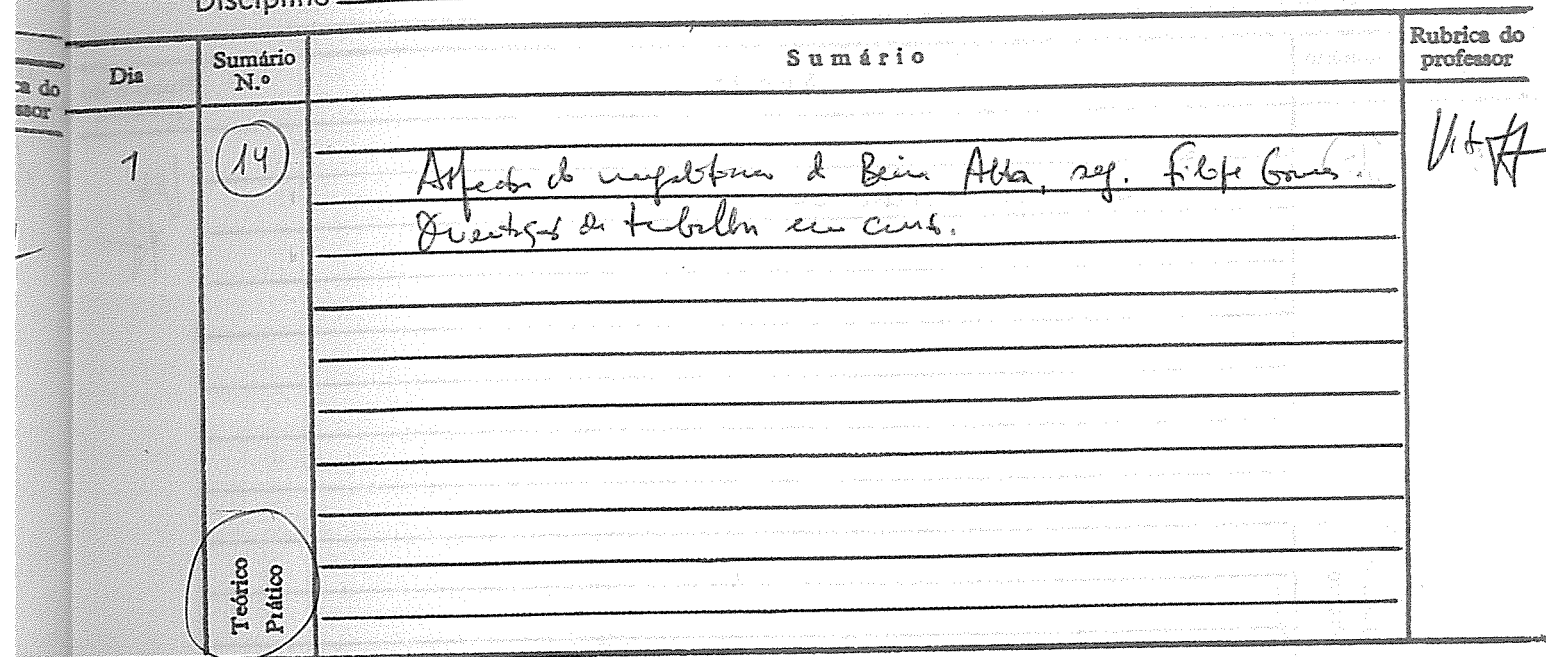 Disciplina
Dia
Sumário N.º
Sumário
Rubrica do professor
ca do
ssor
1
14
Aspectos do megalitismo da Beira Alta, seg. Filipe Gomes.
de trabalhos em curso.
Teórico
Prático